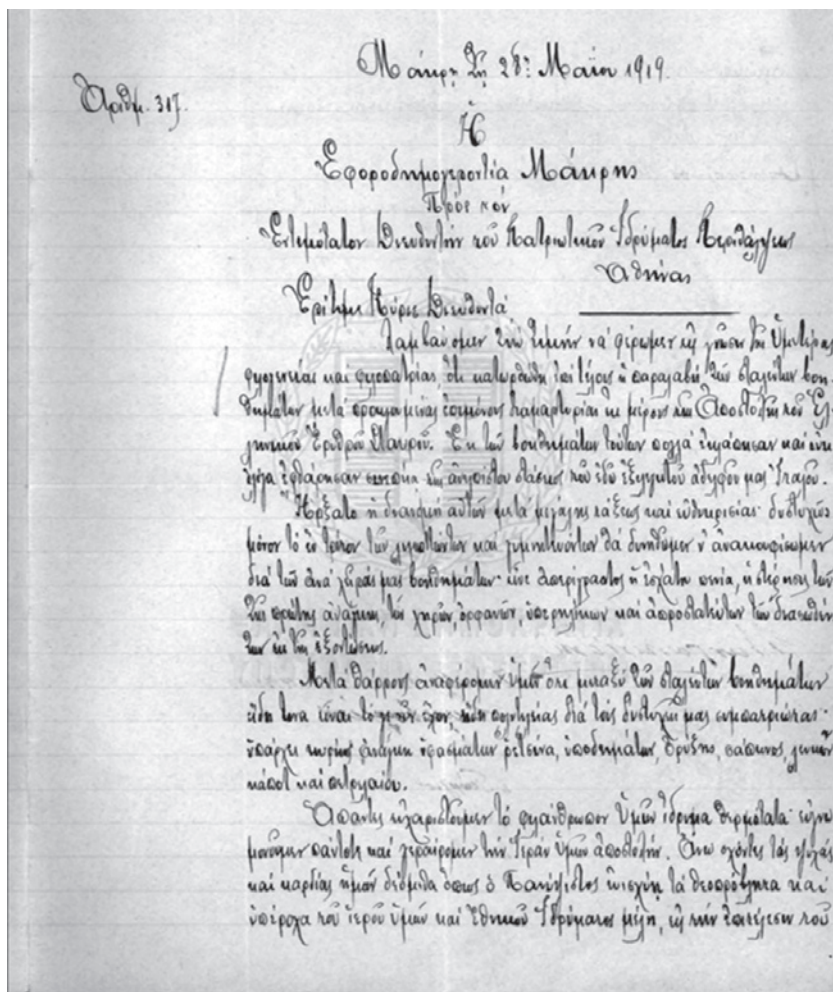 Μάκρη τῇ 28ῃ Μαΐου 1919.
Ἀριθμ. 317.
Ἡ
Ἐφοροδημογεροντία Μάκρης
Πρὸς τὸν
Ἐντιμότατον Διευθυντὴν τοῦ Πατριωτικοῦ Ἱδρύματος Περιθάλψεως
Ἀθήνας
Ἐρίτιμε Κύριε Διευθυντά
Λαμβάνομεν τὴν τιμὴν νὰ φέρωμεν εἰς γνῶσιν τῆς Ὑμετέρας
φιλογενείας καὶ φιλοπατρίας, ὅτι κατωρθώθη ἐπὶ τέλους ἡ παραλαβὴ τῶν σταλέντων βοη-
θημάτων μετὰ προηγουμένας ἐπιμόνους διαμαρτυρίας ἐκ μέρους τῆς Ἀποστολῆς τοῦ Ἑλ-
ληνικοῦ Ἐρυθροῦ Σταυροῦ. Ἐκ τῶν βοηθημάτων τούτων πολλὰ ἐκλάπησαν καὶ οὐκ
ὀλίγα ἐφθάρησαν ἕνεκα τῆς στάσεως τοῦ ἐδῶ ἀδελφοῦ μας Ἰταλοῦ.
Ἤρξατο ἡ διανομὴ αὐτῶν μετὰ μεγάλης τάξεως καὶ εὐθυκρισίας· δυστυχῶς
μόνον τὸ ἓν τρίτον τῶν λιμοττόντων καὶ γυμνητευόντων θὰ δυνηθῶμεν ν' ἀνακουφίσωμεν
διὰ τῶν ἀνὰ χεῖρας μας βοηθημάτων· εἶνε ἀπερίγραπτος ἡ ἐσχάτη πενία, ἡ στέρησις τῶν
τῆς πρώτης ἀνάγκης, τῶν χηρῶν, ὀρφανῶν, ὑπερηλίκων καὶ ἀπροστατεύτων τῶν διασωθέν-
των ἐκ τῆς ἐξοντώσεως.
Μετὰ θάρρους ἀναφέρομεν ὑμῖν ὅτι μεταξὺ τῶν σταλέντων βοηθημάτων
εἴδη τινα εἶναι πολυτελείας διὰ τοὺς δυστυχεῖς μας συμπατριώτας·
ὑπάρχει κυρίως ἀνάγκη ὑφασμάτων, ὑποδημάτων, ὀρύζης, σάπωνος,
κάποτ καὶ πετρελαίου.
Ἅπαντες εὐχαριστοῦμεν τὸ φιλάνθρωπον Ὑμῶν ἵδρυμα θερμότατα· εὐγνω-
μονοῦμεν πάντοτε καὶ γεραίρομεν τὴν Ἱερὰν Ὑμῶν ἀποστολήν. Ἄνω σχόντες τὰς ψυχὰς
καὶ καρδίας ἡμῶν δεόμεθα ὅπως ὁ Πανύψιστος ἐνισχύῃ τὰ θεοπρόβλητα καὶ
ὑπέροχα τοῦ ἱεροῦ ὑμῶν καὶ Ἐθνικοῦ Ἱδρύματος μέλη, εἰς τὴν ἐπιτέλεσιν τοῦ